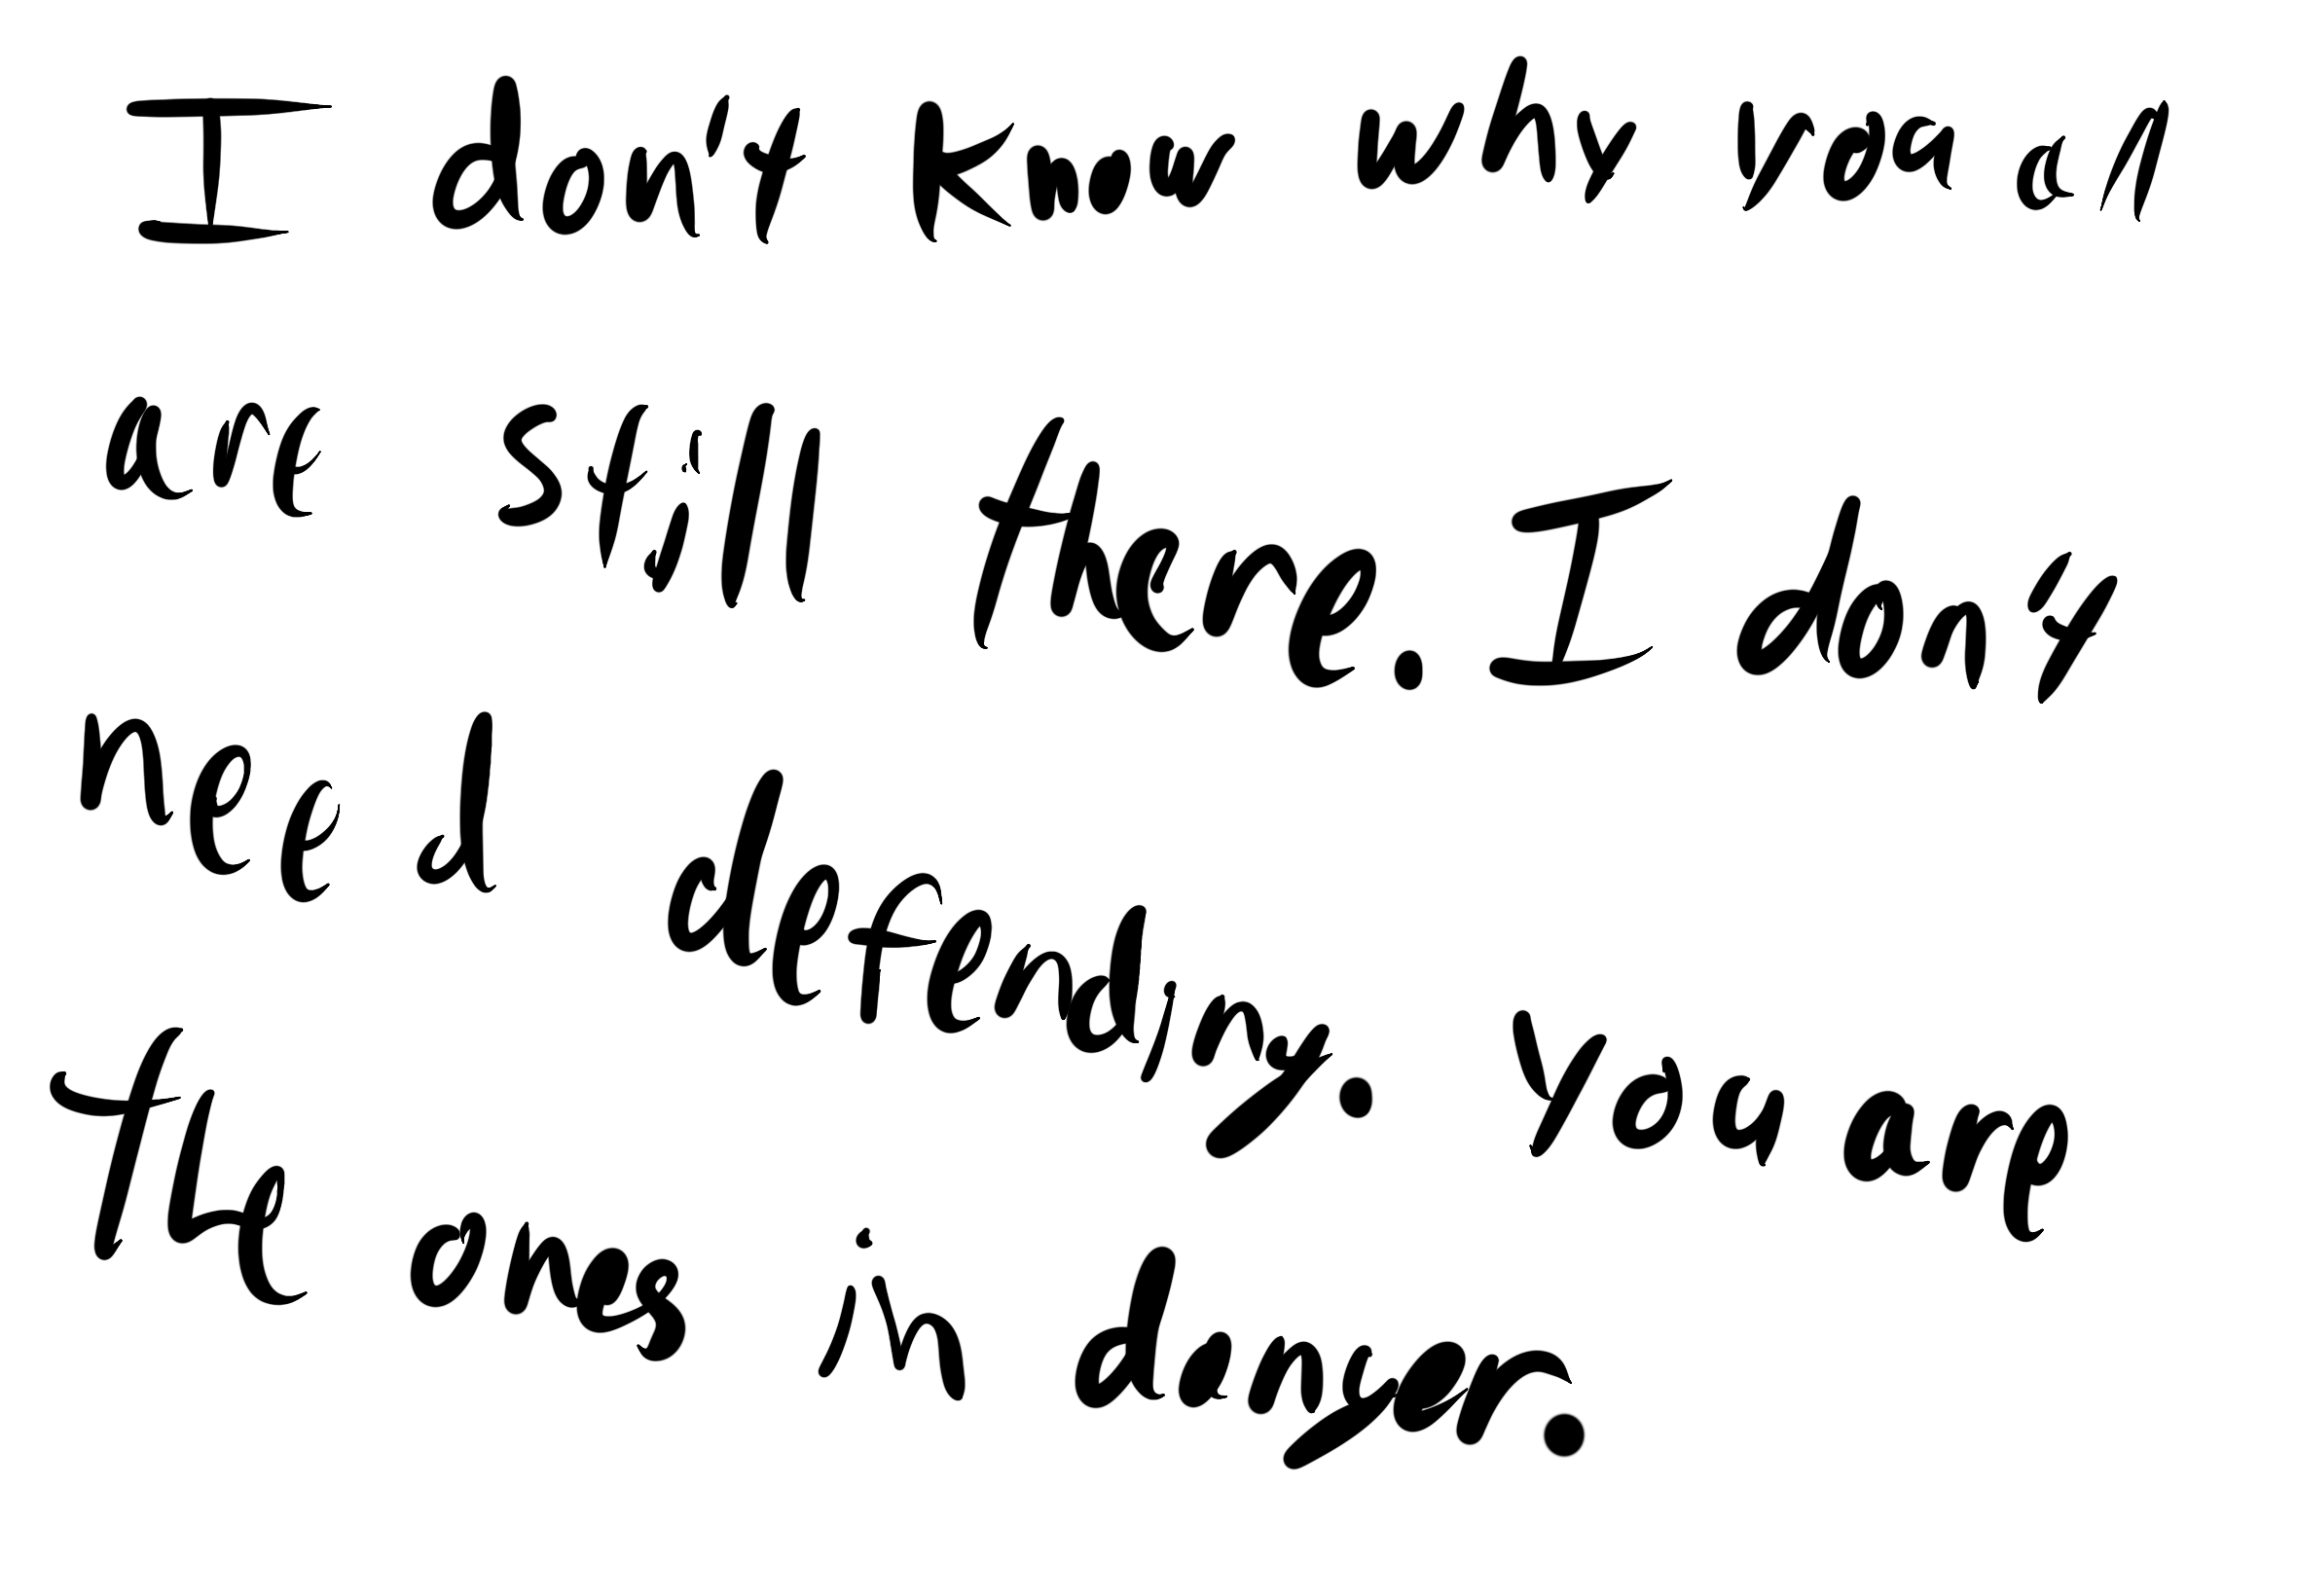 I don't know why you all
are still there. I don't
need defending. You are
the ones in danger.